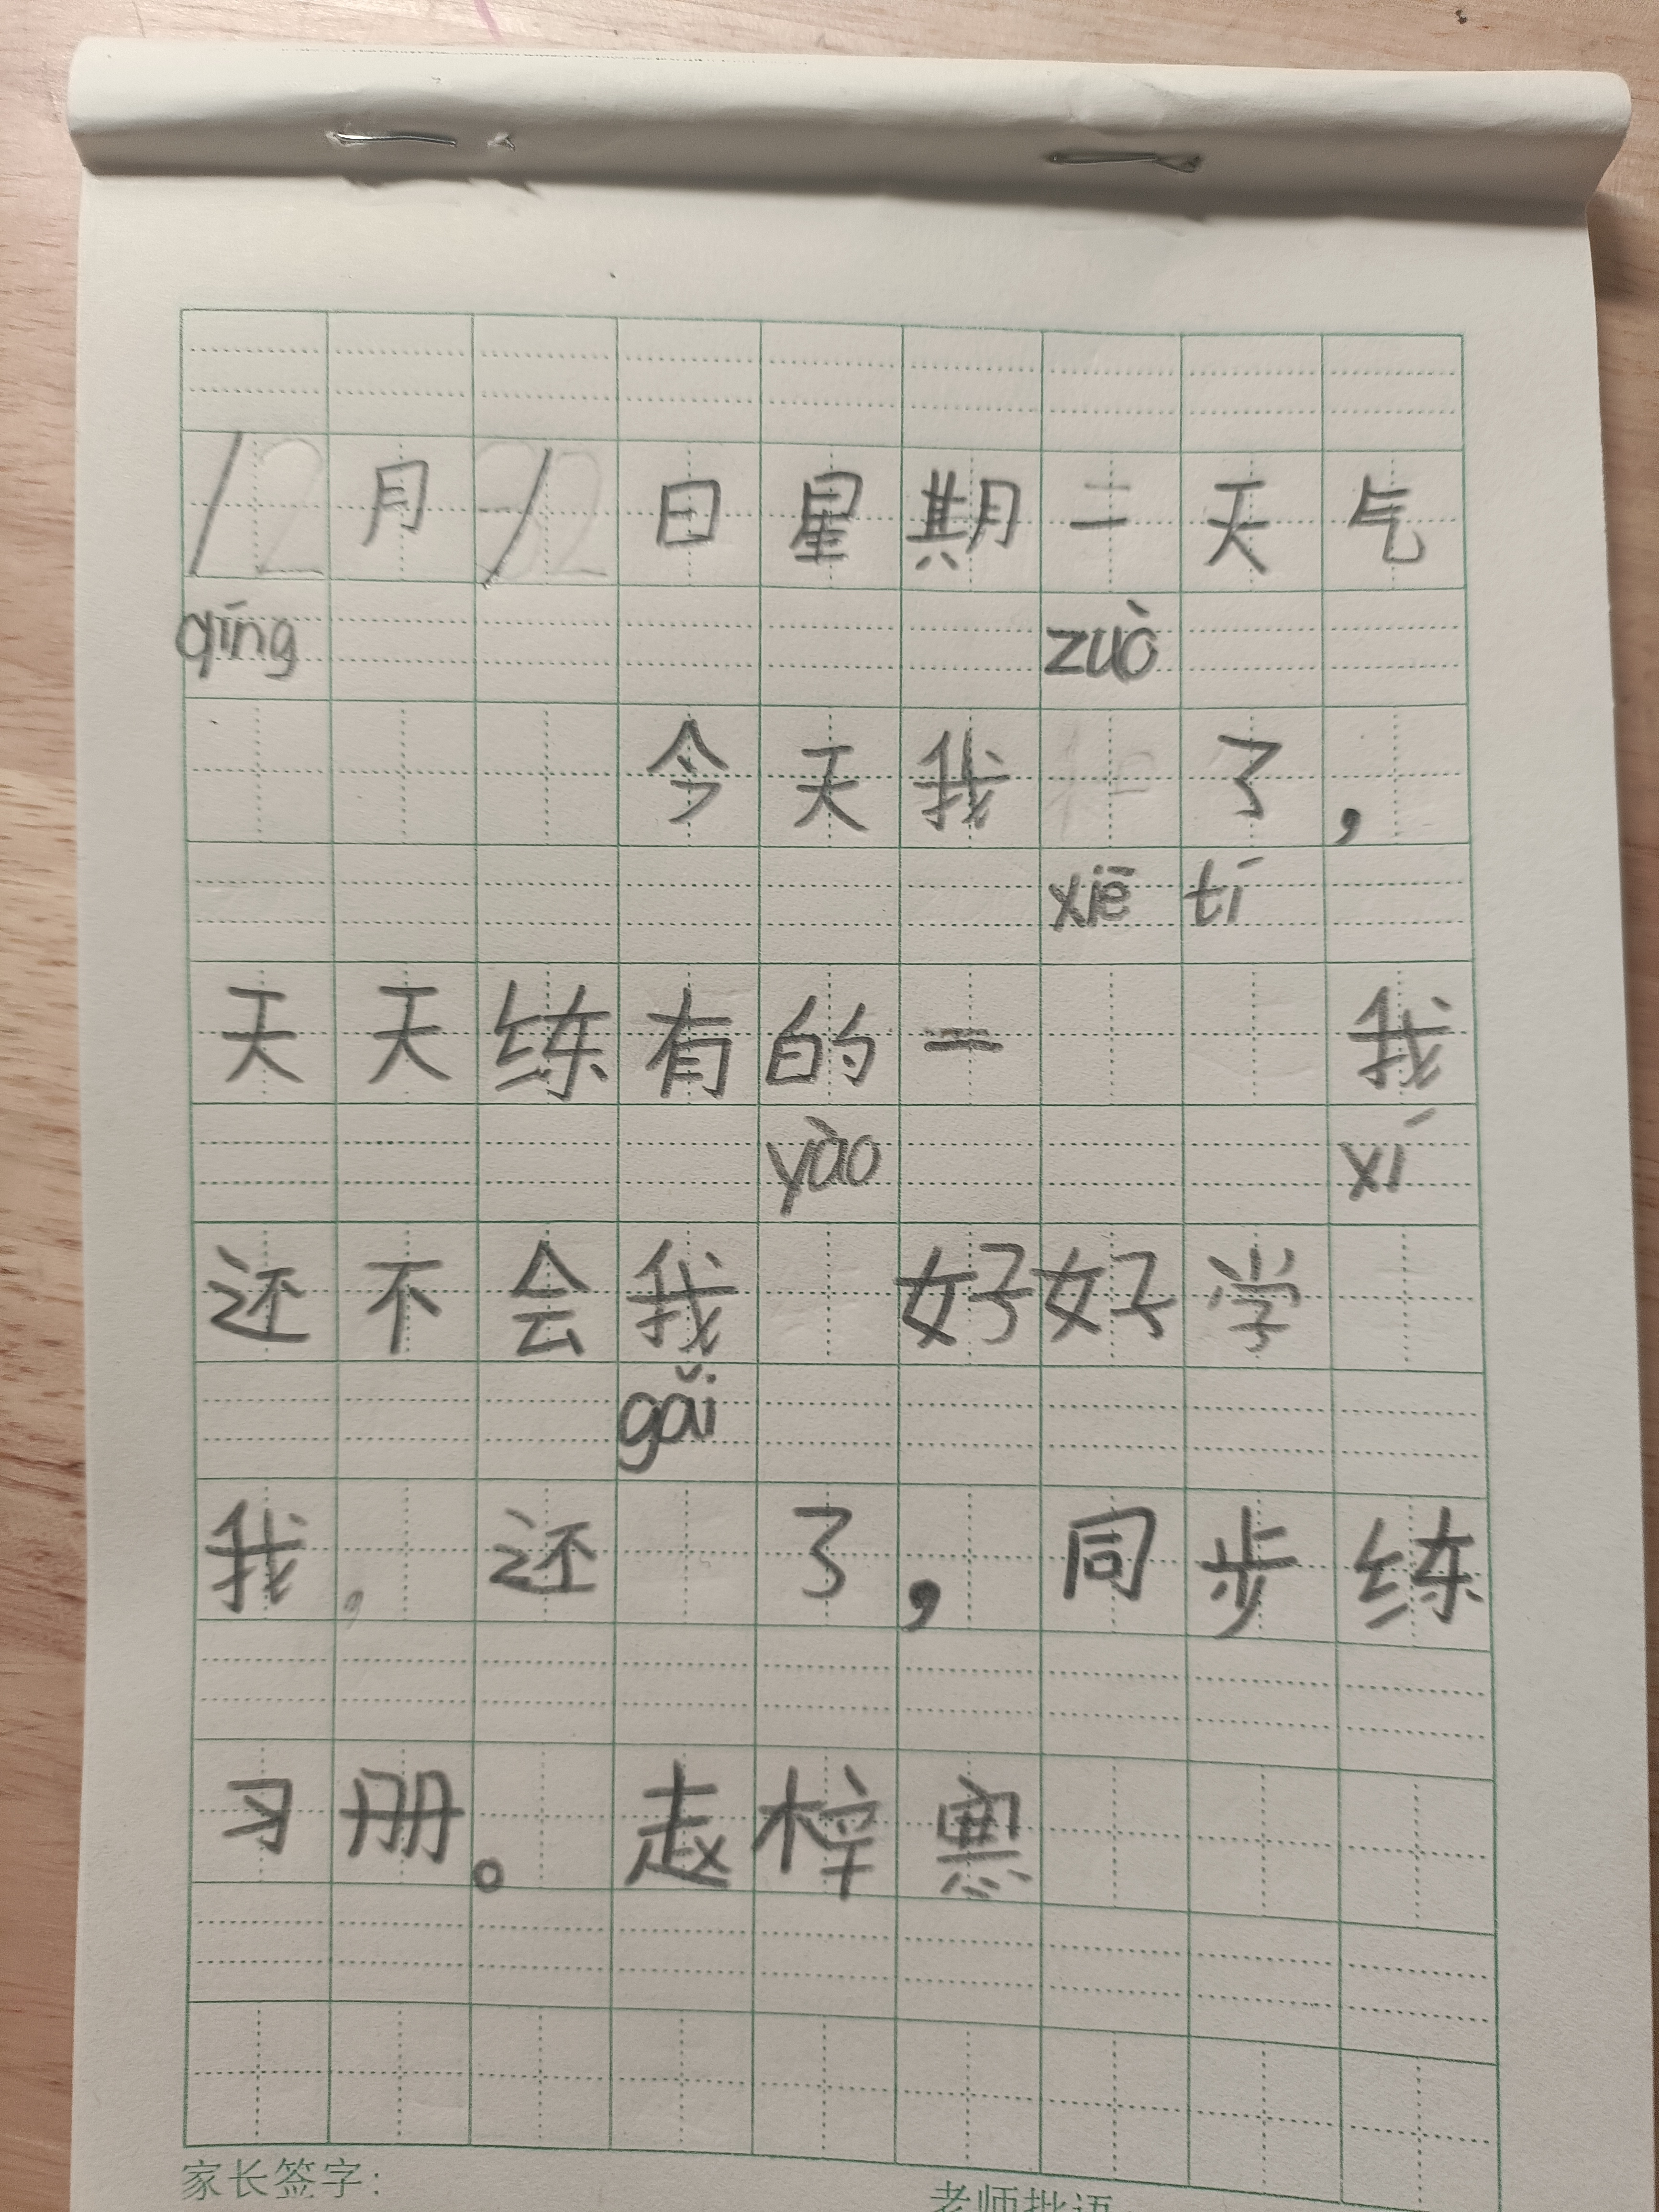 1月1日星期二天气
qíng zuò
今天我了，
xiē tí
天天练有的一我
yào xí
还不会我好好学
gǎi
我，还了，同步练
习册。赵梓寒
家长签字：
老师批语